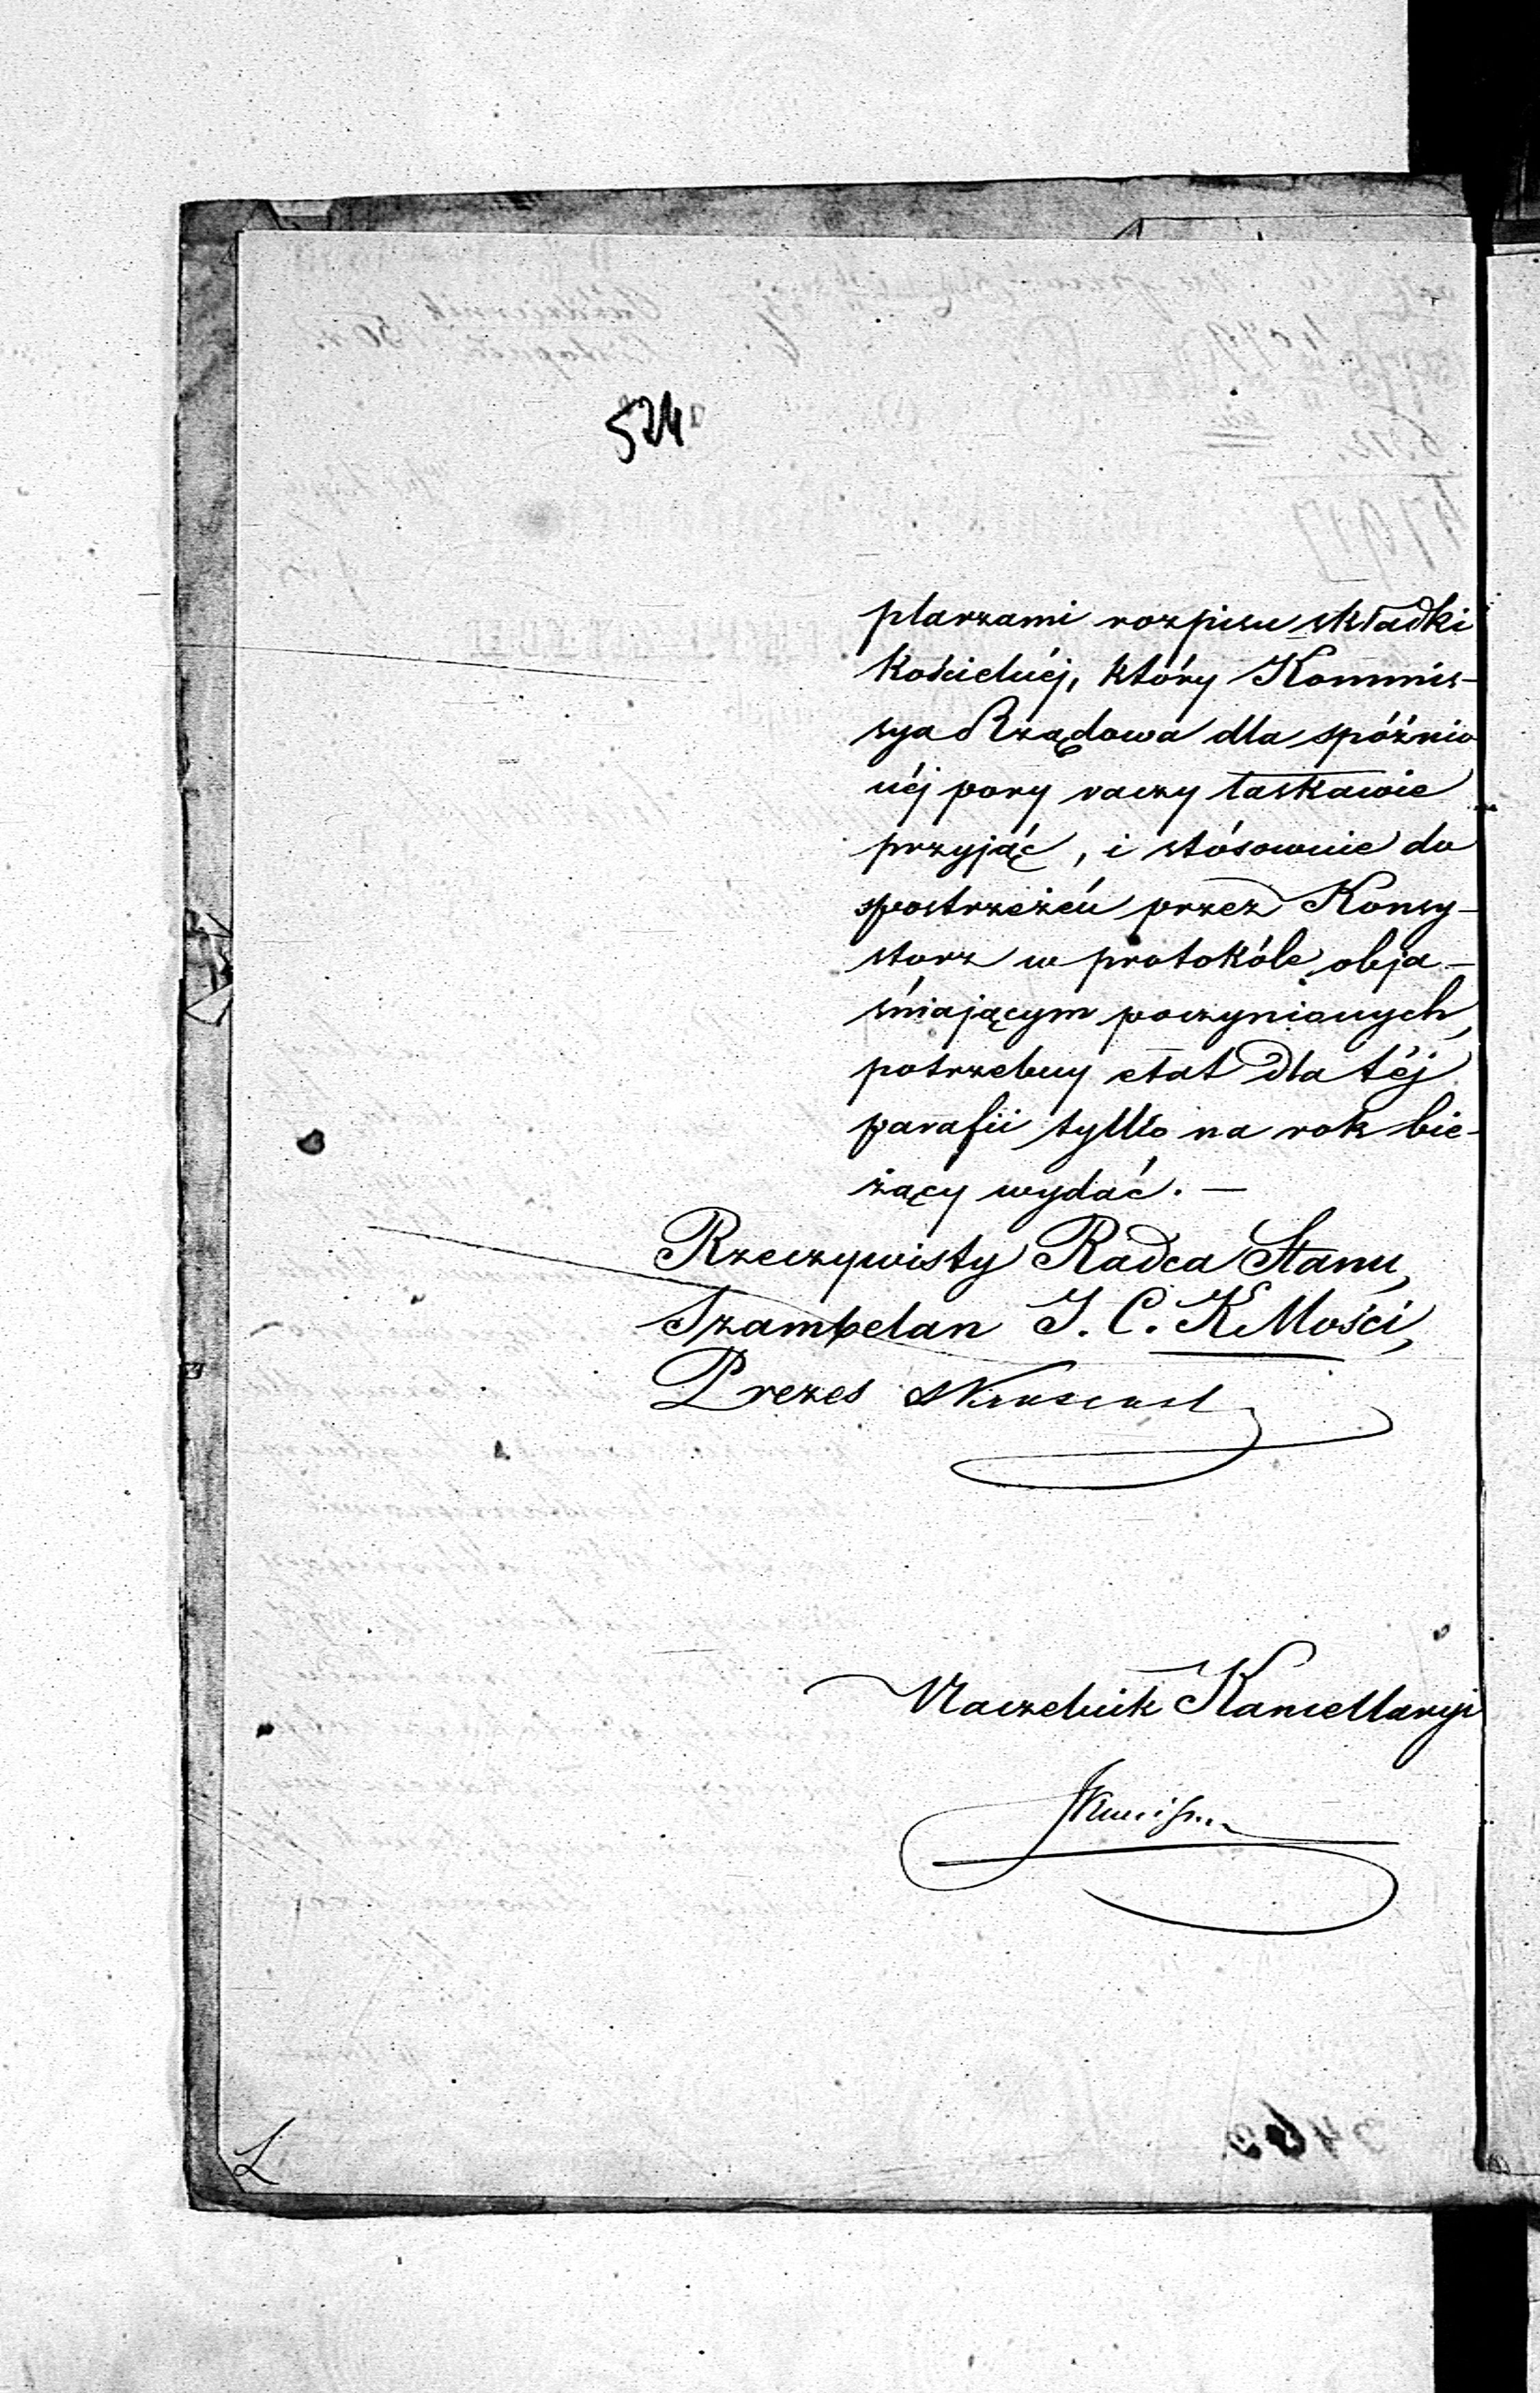 524
plarzami rozpisu składki
Kościelnéj, który Kommis-
sya Rządowa dla spóźnio
néj pory raczy łaskawie
przyjąć, i stósownie do
spostrzeżeń przez Konsy-
storz w protokóle obja-
śniającym poczynionych,
potrzebny etat dla téj
parafii tylko na rok bie-
żący wydać. —
Rzeczywisty Radca Stanu,
Szambelan J. C. K Mości,
Prezes
Naczelnik Kancellaryi